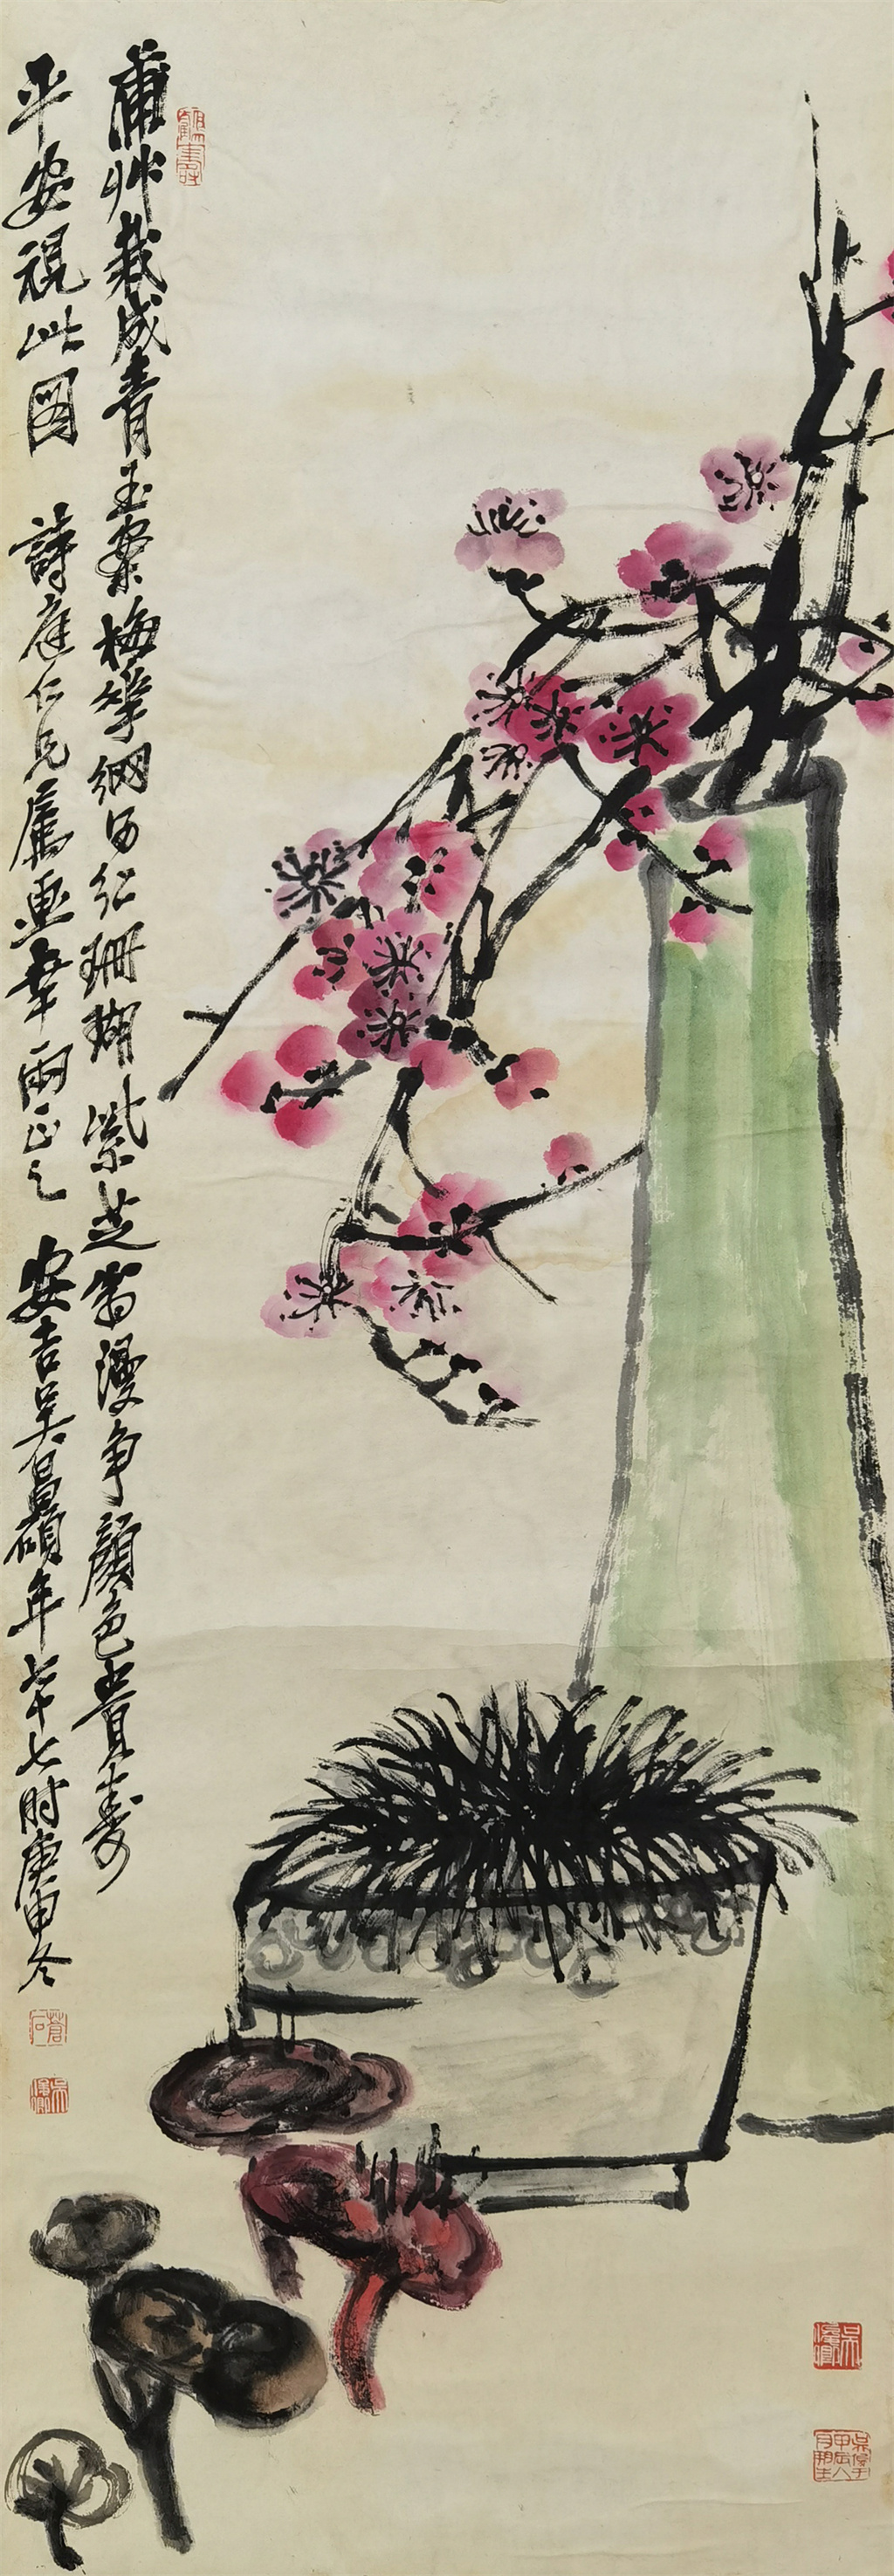 蒲艸栽成青玉案梅華網紅珊瑚紫芝翁漫爭顏色貴壽
平安視此圖 詩庭仁兄屬畫幸兩正之 安吉吳昌碩年七十七時庚申冬
蒼石